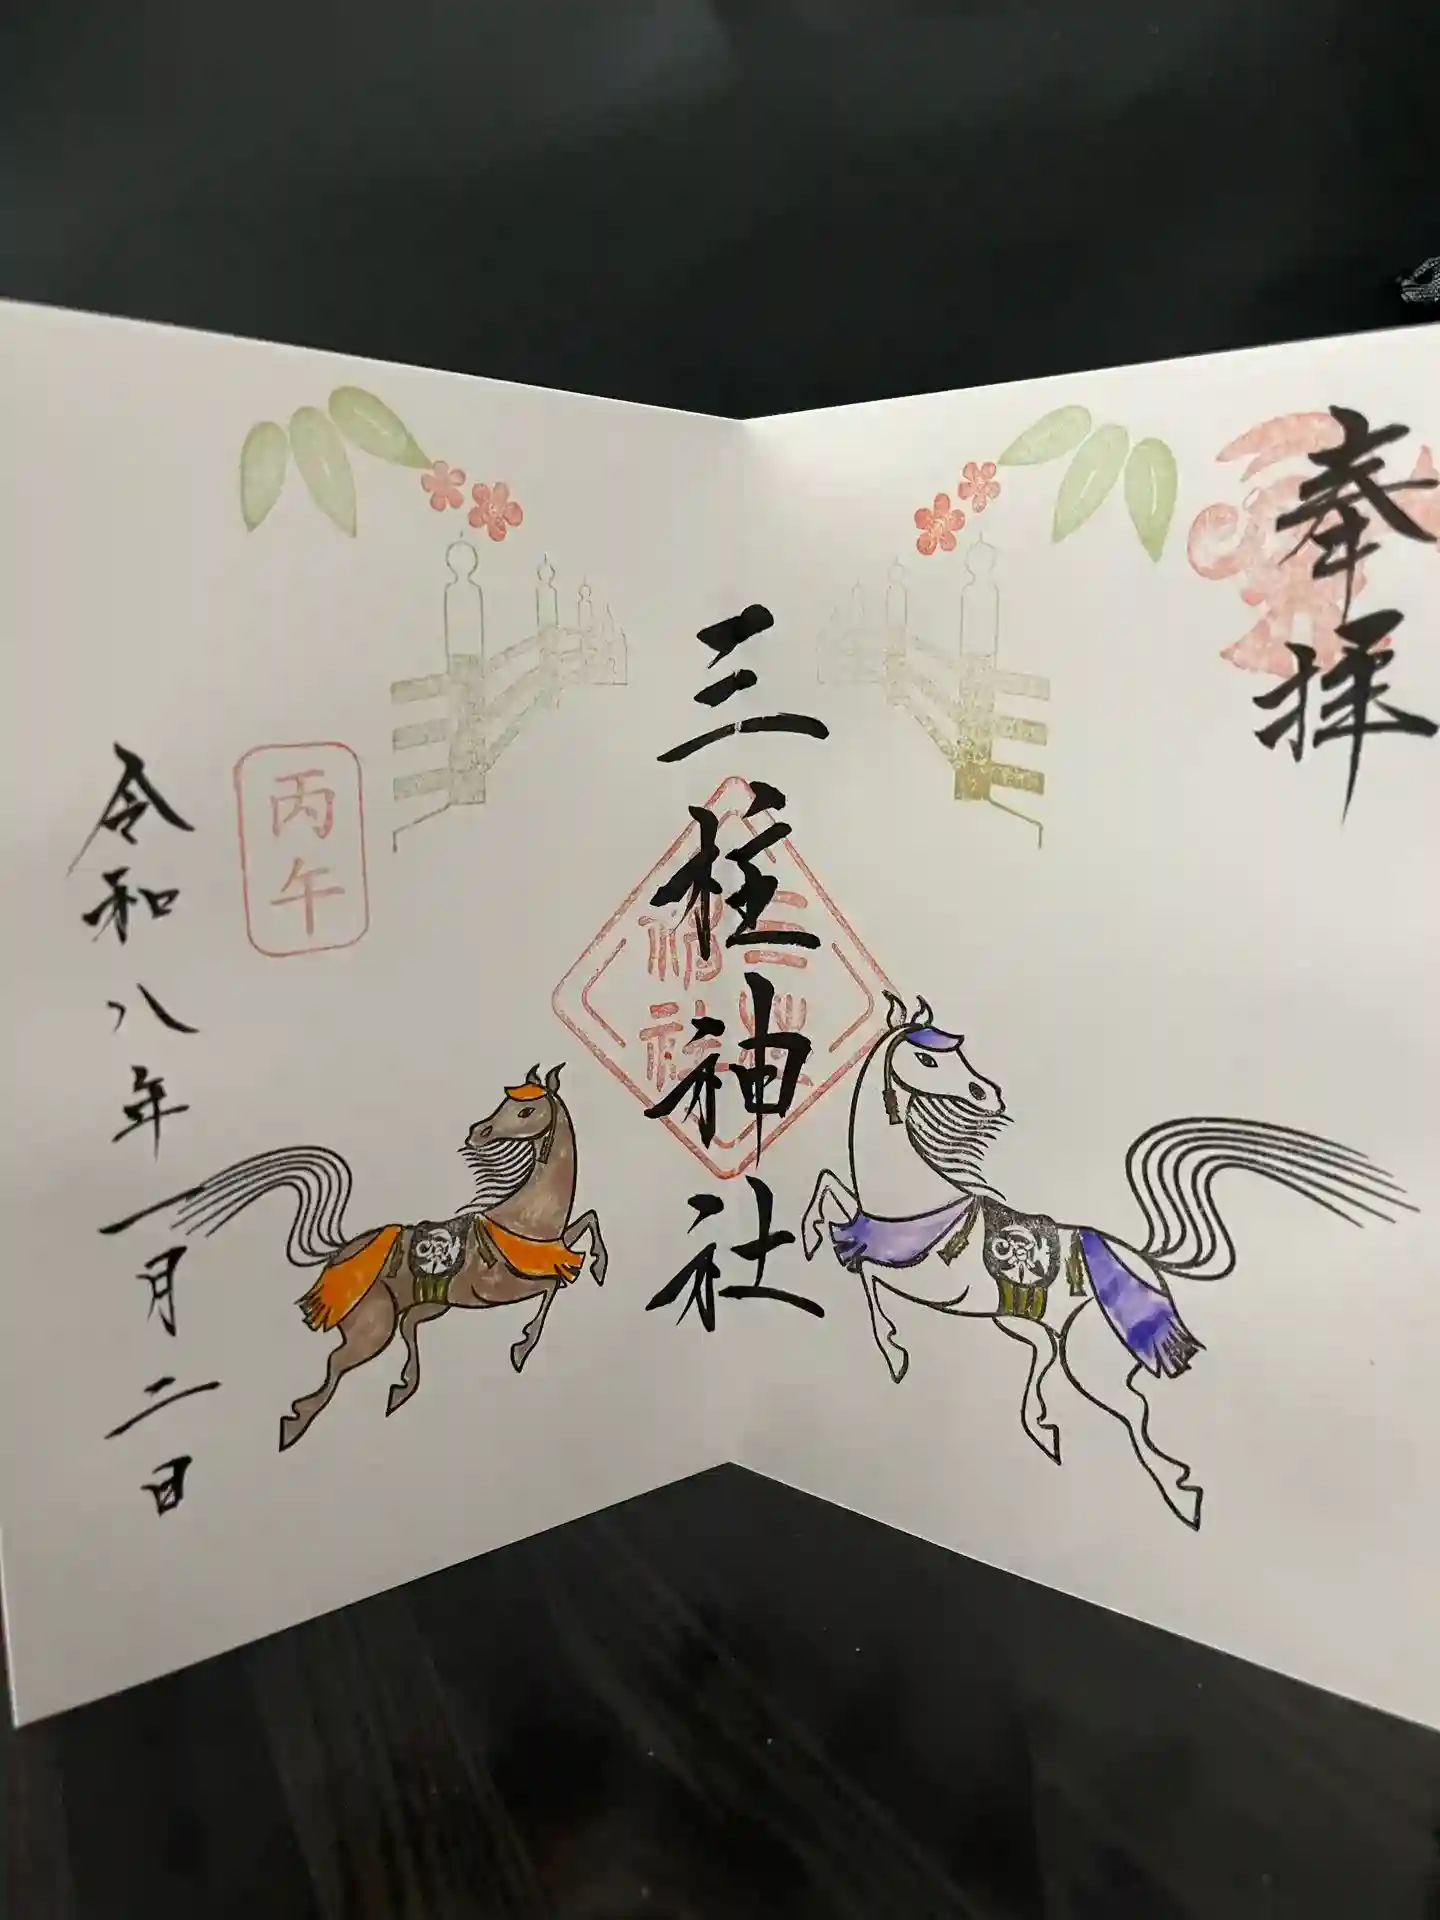 奉拝
三柱神社
三柱
神社
丙午
令和八年一月二日